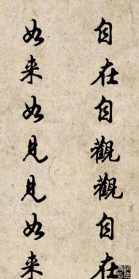 自在自觀觀自在
如来如見見如来